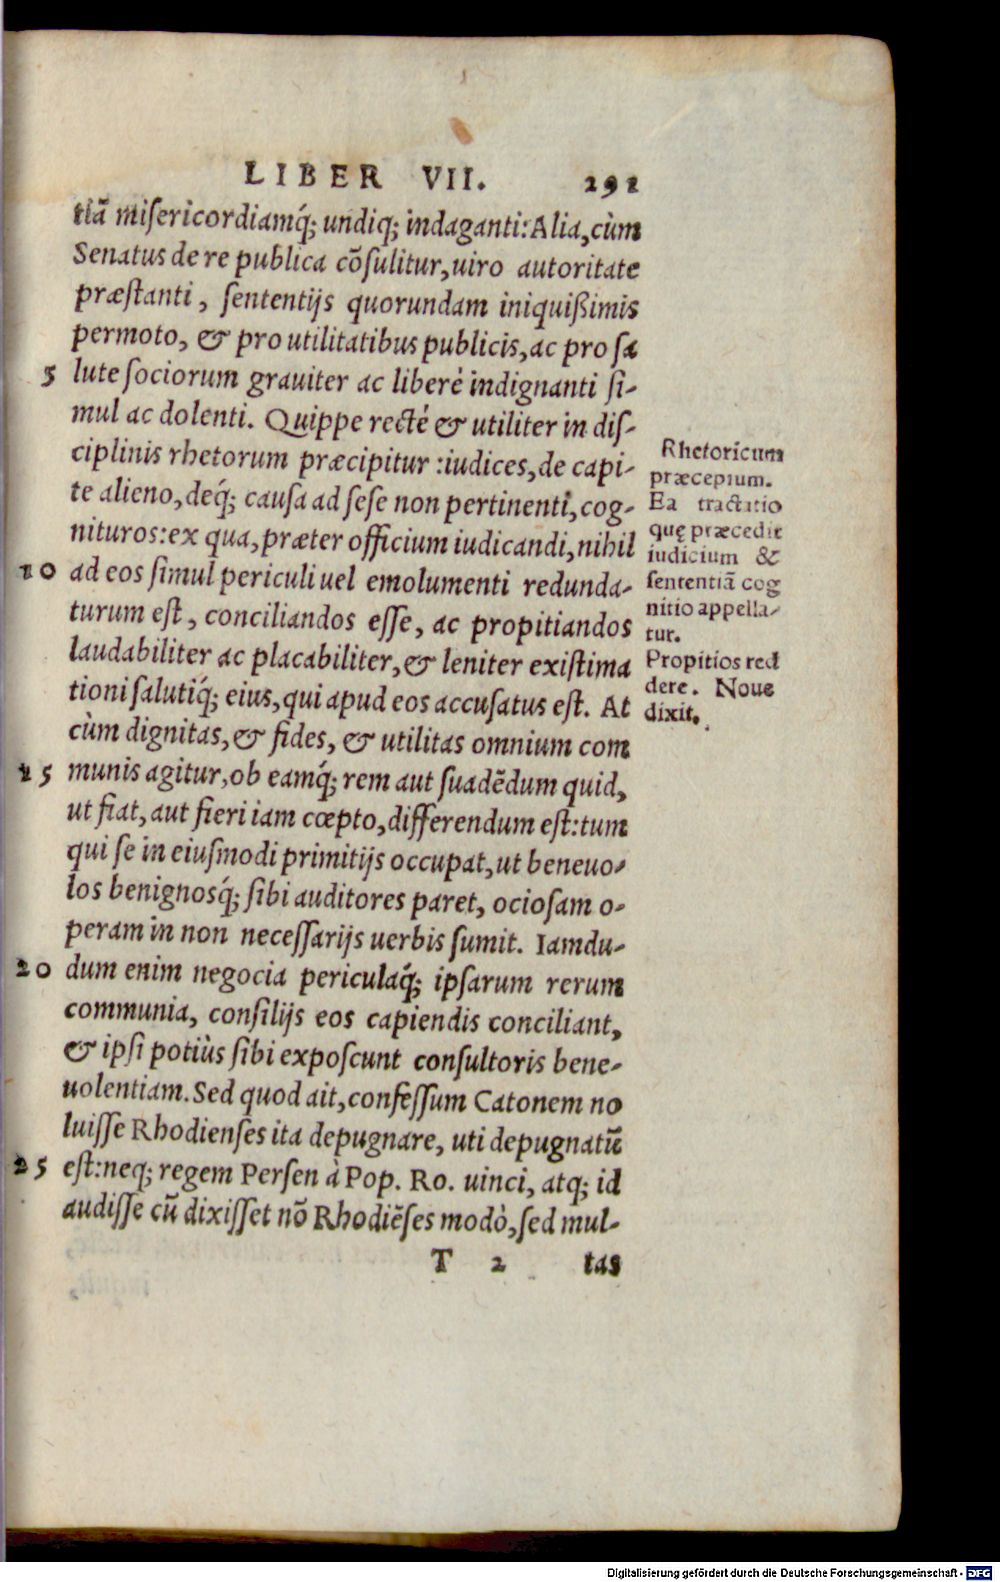 LIBER VII. 291
tiã misericordiamq́; undiq; indaganti: Alia, cùm
Senatus de re publica cõsulitur, uiro autoritate
præstanti, sententijs quorundam iniquißimis
permoto, & pro utilitatibus publicis, ac pro sa
5 lute sociorum grauiter ac liberé indignanti si-
mul ac dolenti. Quippe recté & utiliter in dis-
ciplinis rhetorum præcipitur :iudices, de capi-
te alieno, deq́; causa ad sese non pertinenti, cog-
nituros: ex qua, præter officium iudicandi, nihil
10 ad eos simul periculi uel emolumenti redunda-
turum est, conciliandos esse, ac propitiandos
laudabiliter ac placabiliter, & leniter existima
tioni salutiq́; eius, qui apud eos accusatus est. At
cùm dignitas, & fides, & utilitas omnium com
15 munis agitur, ob eamq́; rem aut suadẽdum quid,
ut fiat, aut fieri iam cœpto, differendum est: tum
qui se in eiusmodi primitijs occupat, ut beneuo-
los benignosq́; sibi auditores paret, ociosam o-
peram in non necessarijs uerbis sumit. Iamdu-
20 dum enim negocia periculaq́; ipsarum rerum
communia, consilijs eos capiendis conciliant,
& ipsi potiùs sibi exposcunt consultoris bene-
uolentiam. Sed quod ait, confessum Catonem no
luisse Rhodienses ita depugnare, uti depugnatũ
25 est: neq; regem Persen à Pop. Ro. uinci, atq; id
audisse cũ dixisset nõ Rhodiẽses modò, sed mul-
T 2 tas
Rhetoricum
præceptum.
Ea tractatio
quę præcedit
iudicium &
sententiã cog
nitio appella-
tur.
Propitios red
dere. Noue
dixit.
Digitalisierung gefördert durch die Deutsche Forschungsgemeinschaft - DFG